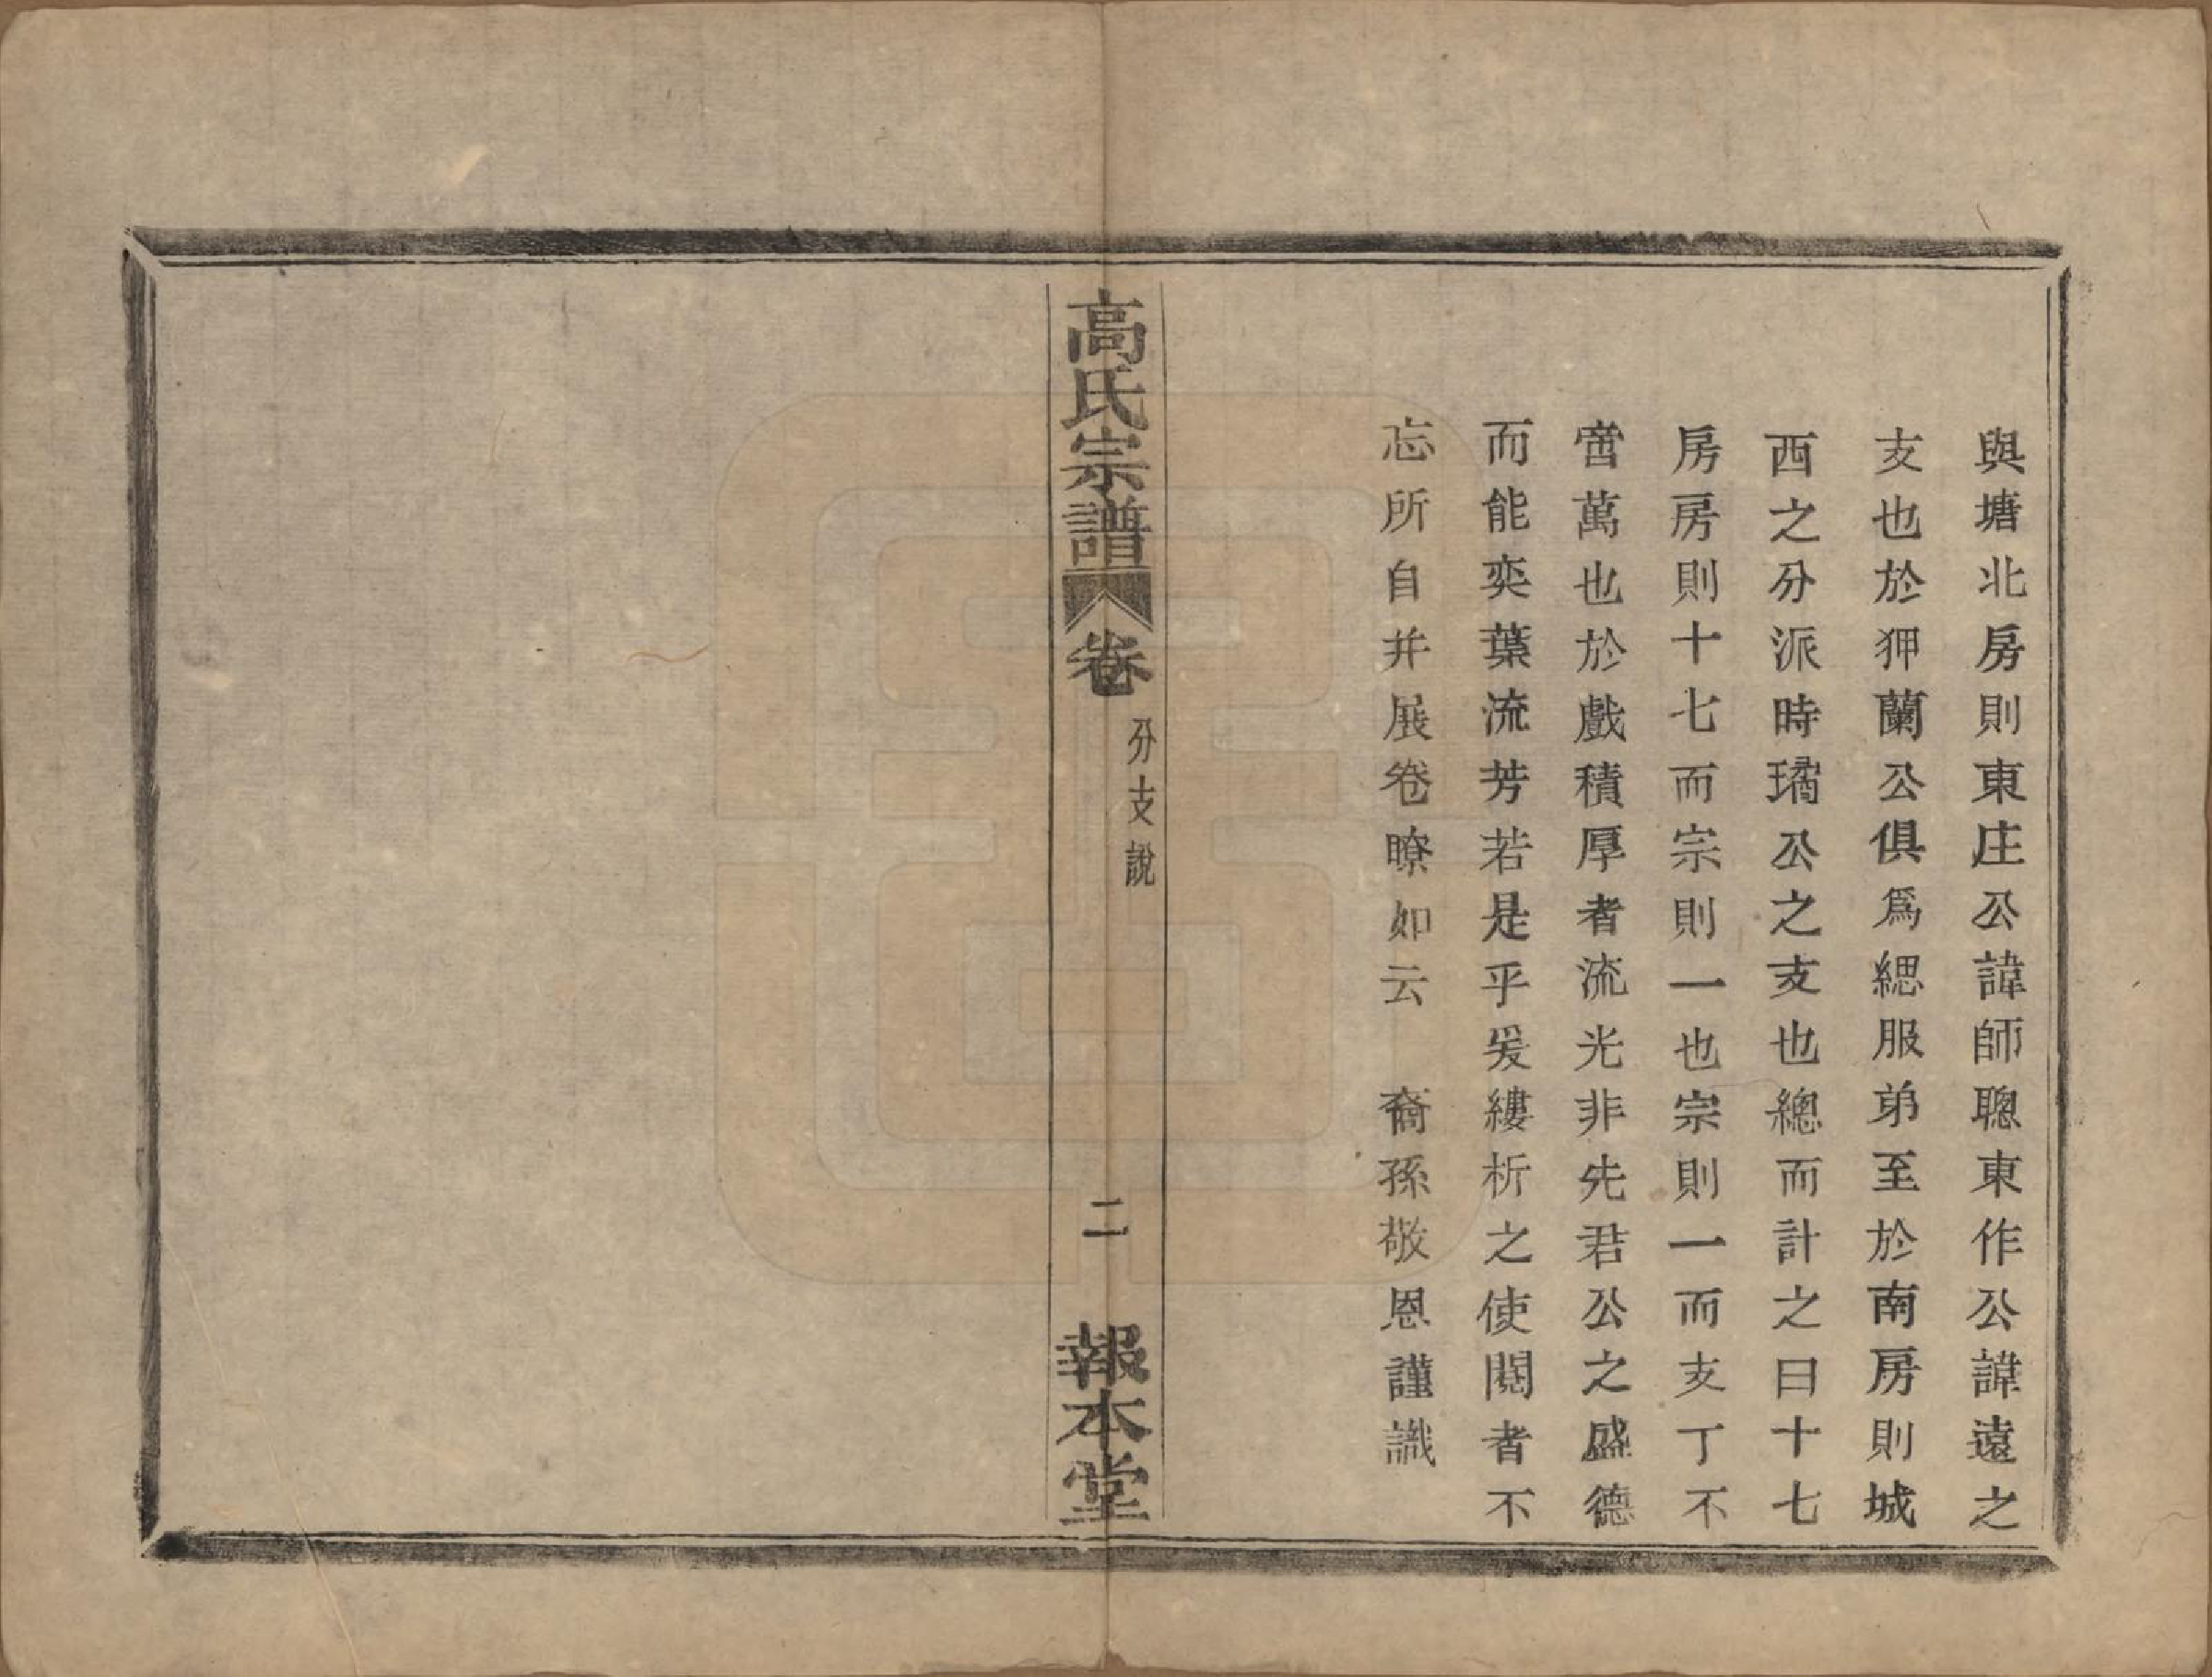 與塘北房則東庄公諱師聰東作公諱遠之
支也於狎蘭公俱爲緦服弟至於南房則城
西之分派時璚公之支也總而計之曰十七
房房則十七而宗則一也宗則一而支丁不
啻萬也於戲積厚者流光非先君公之盛德
而能奕葉流芳若是乎爰縷析之使閱者不
忘所自幷展卷暸如云　裔孫敬恩謹識
高氏宗譜　卷　分支說　二　報本堂